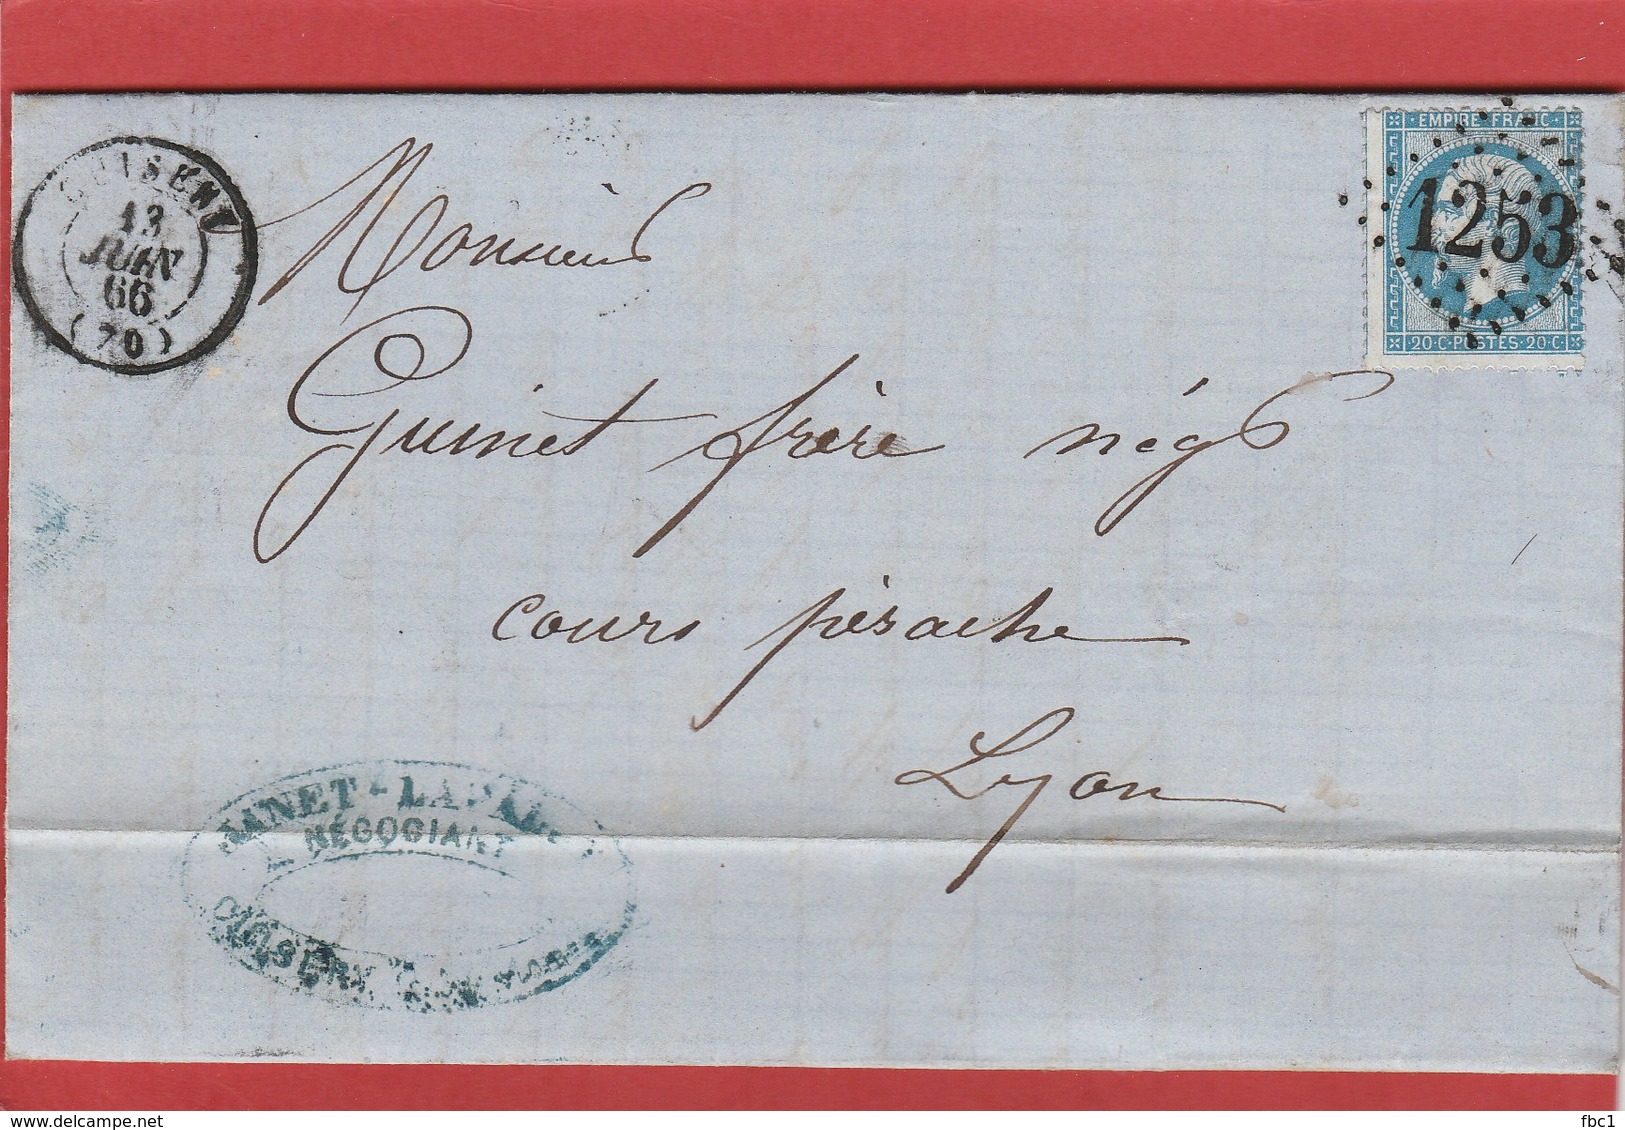 CUISERY
13
JUIN
66
(70)
EMPIRE FRANC
1253
20·C·POSTES·20·C
Monsieur
Guinet frère négt
cours pérache
Lyon
NÉGOCIANT
delcampe.net
fbc1